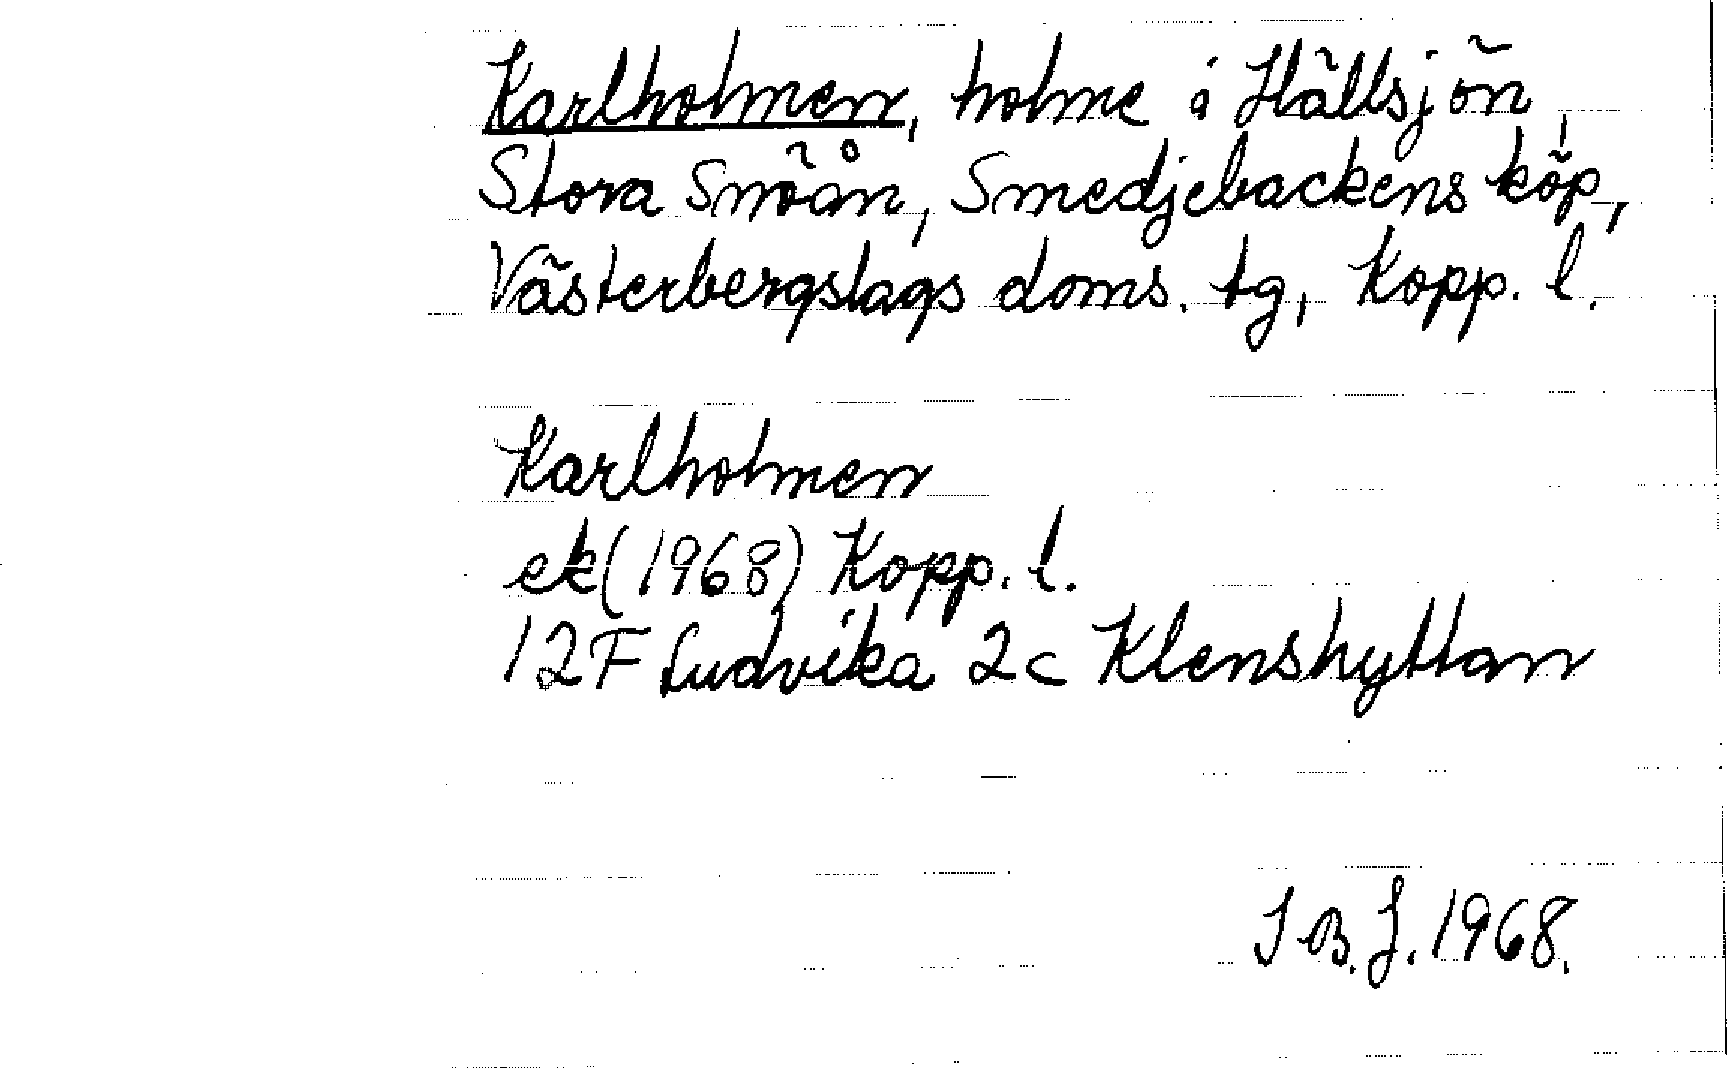 Karlholmen, holme i Hällsjön,
Stora Snöån, Smedjebackens köp,
Västerbergslags doms. tg, Kopp. l.
Karlholmen
ek (1968) Kopp. l.
12F Ludvika 2c Klenshyttan
I B. J. 1968.